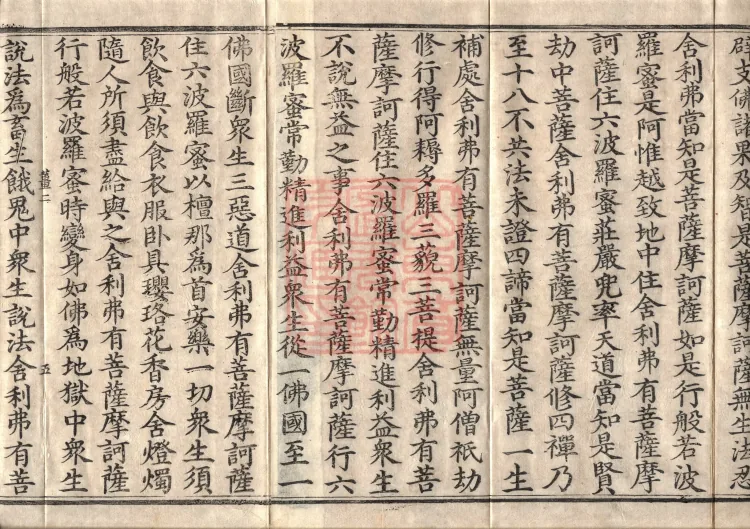 辟支佛諸果及智是菩薩摩訶薩無生法忍
舍利弗當知是菩薩摩訶薩如是行般若波
羅蜜是阿惟越致地中住舍利弗有菩薩摩
訶薩住六波羅蜜莊嚴兜率天道當知是賢
劫中菩薩舍利弗有菩薩摩訶薩修四禪乃
至十八不共法未證四諦當知是菩薩一生
補處舍利弗有菩薩摩訶薩無量阿僧祇劫
修行得阿耨多羅三藐三菩提舍利弗有菩
薩摩訶薩住六波羅蜜常勤精進利益衆生
不說無益之事舍利弗有菩薩摩訶薩行六
波羅蜜常勤精進利益衆生從一佛國至一
佛國斷衆生三惡道舍利弗有菩薩摩訶薩
住六波羅蜜以檀那爲首安樂一切衆生須
飲食與飲食衣服卧具瓔珞花香房舍燈燭
隨人所須盡給與之舍利弗有菩薩摩訶薩
行般若波羅蜜時變身如佛爲地獄中衆生
薑二 五
說法爲畜生餓鬼中衆生說法舍利弗有菩